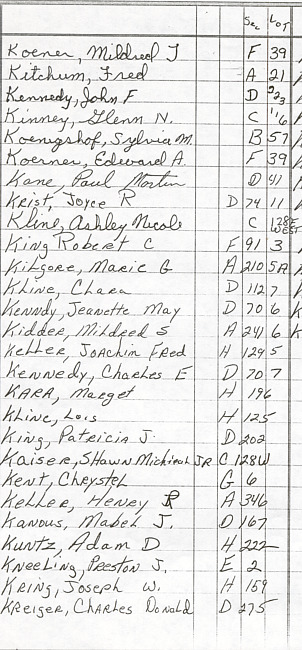 Sec Lot
Koener, Mildred J F 39
Kitchum, Fred A 21
Kennedy, John F D 223
Kinney, Glenn N. C 116
Koenigshof, Sylvia M. B 57
Koerner, Edward A. F 39
Kane, Paul Martin D 41
Krist, Joyce R D 74 11
Kline, Ashley Nicole C 128 E WEST
King Robert C F 91 3
Kilgore, Marie G A 210 5A
Kline, Clara D 112 7
Kenndy, Jeanette May D 70 6
Kidder, Mildred S A 241 6
Keller, Joachin Fred H 129 5
Kennedy, Charles E D 70 7
KARR, Marget H 196
Kline, Lois H 125
King, Patricia J. D 202
Kaiser, Shawn Michieal JR C 128W
Kent, Chrystel G 6
Keller, Henry R A 346
Kanous, Mabel J. D 167
Kuntz, Adam D H 222
Kneeling, Preston J. E 2
Kring, Joseph W. H 159
Kreiger, Charles Donald D 275